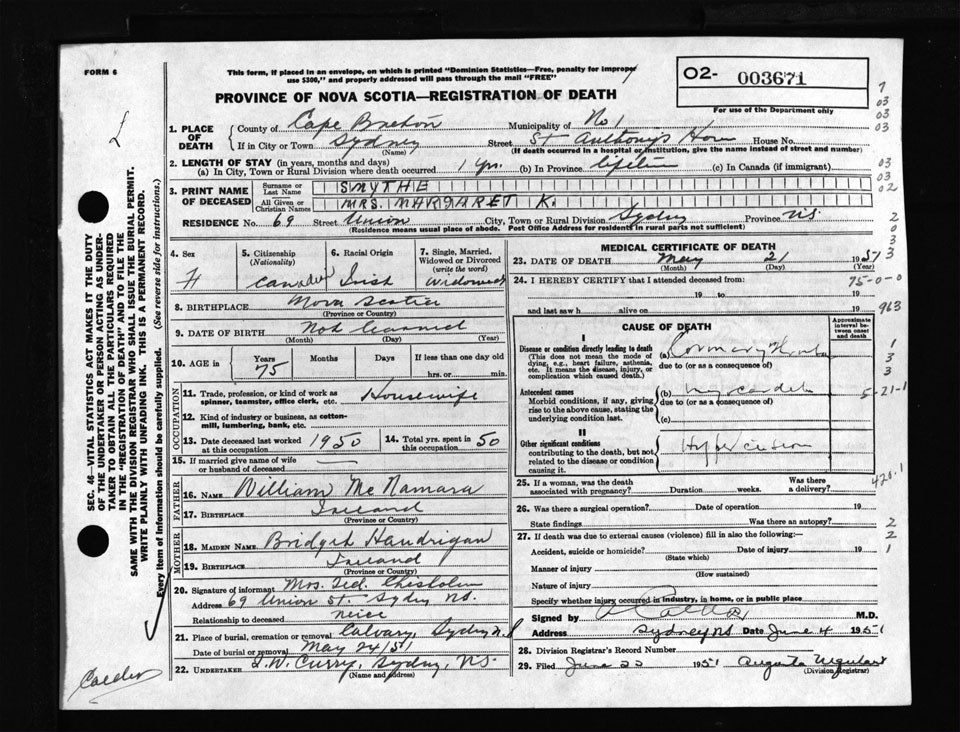 FORM 6
This form, if placed in an envelope, on which is printed "Dominion Statistics—Free, penalty for improper use $300," and properly addressed will pass through the mail "FREE"
O2- 003671
For use of the Department only
PROVINCE OF NOVA SCOTIA—REGISTRATION OF DEATH
1. PLACE OF DEATH
County of Cape Breton Municipality of No 1
If in City or Town Sydney (Name) Street St Anthony's Home House No.
(If death occurred in a hospital or institution, give the name instead of street and number)
2. LENGTH OF STAY (in years, months and days)
(a) In City, Town or Rural Division where death occurred 1 yr. (b) In Province lifetime (c) In Canada (if immigrant)
3. PRINT NAME OF DECEASED
Surname or Last Name SMYTHE
All Given or Christian Names MRS. MARGARET K.
RESIDENCE No. 69 Street Union City, Town or Rural Division Sydney Province N.S.
(Residence means usual place of abode. Post Office Address for residents in rural parts not sufficient)
4. Sex F
5. Citizenship (Nationality) Canadian
6. Racial Origin Irish
7. Single, Married, Widowed or Divorced (write the word) Widowed
8. BIRTHPLACE Nova Scotia
(Province or Country)
9. DATE OF BIRTH Not learned
(Month) (Day) (Year)
10. AGE in Years 75 Months Days If less than one day old hrs. or min.
OCCUPATION
11. Trade, profession, or kind of work as spinner, teamster, office clerk, etc. Housewife
12. Kind of industry or business, as cotton-mill, lumbering, bank, etc.
13. Date deceased last worked at this occupation 1950
14. Total yrs. spent in this occupation 50
15. If married give name of wife or husband of deceased —
FATHER
16. NAME William McNamara
17. BIRTHPLACE Ireland
(Province or Country)
MOTHER
18. MAIDEN NAME Bridget Handrigan
19. BIRTHPLACE Ireland
(Province or Country)
20. Signature of informant Mrs. Ted. Chisholm
Address 69 Union St. Sydney N.S.
Relationship to deceased neice
21. Place of burial, cremation or removal Calvary, Sydney N.S
Date of burial or removal May 24/51
22. UNDERTAKER T.W. Curry, Sydney, N.S.
(Name and address)
MEDICAL CERTIFICATE OF DEATH
23. DATE OF DEATH May 21 1951
(Month) (Day) (Year)
24. I HEREBY CERTIFY that I attended deceased from:
19 to 19
and last saw h alive on 19
CAUSE OF DEATH
Approximate interval between onset and death
I
Disease or condition directly leading to death (a)
(This does not mean the mode of dying, e.g., heart failure, asthenia, etc. It means the disease, injury, or complication which caused death.)
due to (or as a consequence of)
Antecedent causes (b)
Morbid conditions, if any, giving rise to the above cause, stating the underlying condition last.
due to (or as a consequence of)
(c)
II
Other significant conditions contributing to the death, but not related to the disease or condition causing it.
Hypertension
25. If a woman, was the death associated with pregnancy? Duration weeks. Was there a delivery?
26. Was there a surgical operation? Date of operation 19
State findings Was there an autopsy?
27. If death was due to external causes (violence) fill in also the following:—
Accident, suicide or homicide? (State which) Date of injury 19
Manner of injury
(How sustained)
Nature of injury
Specify whether injury occurred in industry, in home, or in public place
Signed by M.D.
Address Sydney NS Date June 4 1951
28. Division Registrar's Record Number
29. Filed June 22 1951 Augusta Urquhart
(Division Registrar)
SEC. 46—VITAL STATISTICS ACT MAKES IT THE DUTY OF THE UNDERTAKER OR PERSON ACTING AS UNDERTAKER TO OBTAIN ALL THE PARTICULARS REQUIRED IN THE "REGISTRATION OF DEATH" AND TO FILE THE SAME WITH THE DIVISION REGISTRAR WHO SHALL ISSUE THE BURIAL PERMIT.
WRITE PLAINLY WITH UNFADING INK. THIS IS A PERMANENT RECORD.
Every item of Information should be carefully supplied. (See reverse side for instructions.)
Calder
7
03
03
03
03
03
02
2
0
3
3
75-0-0
963
1
3
3
5-21-1
420.1
2
2
1